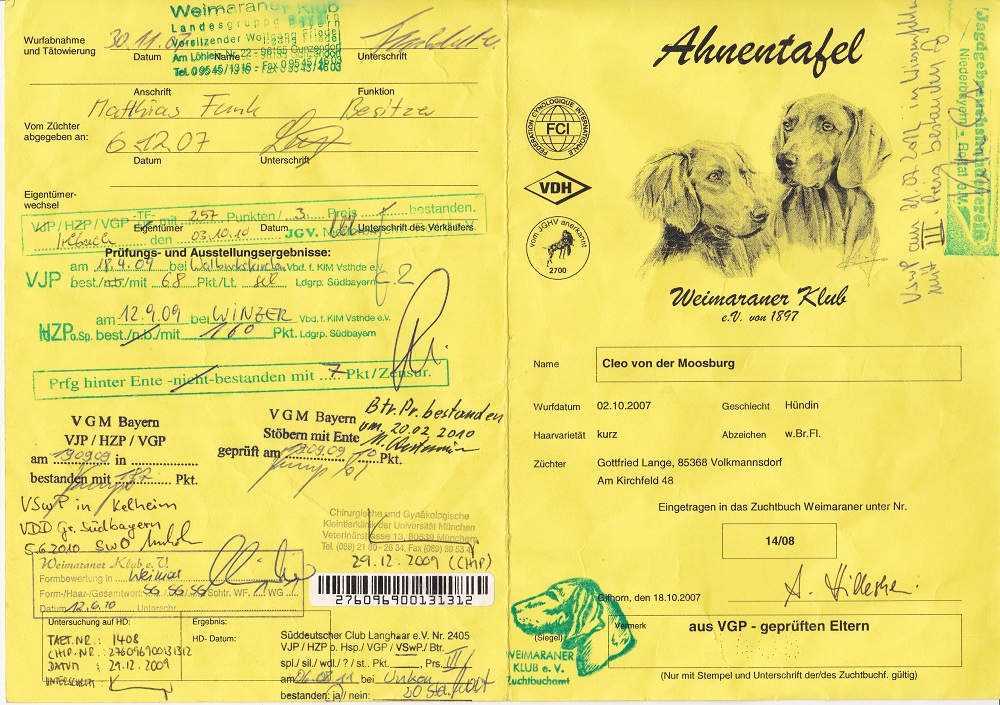 Wurfabnahme
und Tätowierung
30.11.07
Datum Name Unterschrift
Weimaraner Klub
Landesgruppe Bayern
Vorsitzender Wolfgang
Am Löhlein Nr. 22 - 96155 Gunzendorf
Tel. 09545/1316 - Fax 09545/4603
Anschrift Funktion
Matthias Funk Besitzer
Vom Züchter
abgegeben an:
6.12.07
Datum Unterschrift
Eigentümer-
wechsel
VJP / HZP / VGP -TF- mit 257 Punkten / 3. Preis bestanden.
Eigentümer Datum Unterschrift des Verkäufers.
den 03.10.10 JGV.
Prüfungs- und Ausstellungsergebnisse:
VJP am 18.4.09 bei Vbd. f. KlM Vsthde e.V.
best./n.b./mit 68 Pkt./Lt. sil Ldgrp. Südbayern
am 12.9.09 bei WINZER Vbd. f. KlM Vsthde e.V.
HZP o.Sp. best./n.b./mit 160 Pkt. Ldgrp. Südbayern
Prfg hinter Ente -nicht- bestanden mit 7 Pkt/Zensur.
VGM Bayern
VJP / HZP / VGP
am 190909 in
bestanden mit Pkt.
VGM Bayern
Stöbern mit Ente
geprüft am 190909 10 Pkt.
Btr.Pr. bestanden
am 20.02 2010
VSwP in Kelheim
VDD Gr. Südbayern
5.6.2010 SWO
Chirurgische und Gynäkologische
Kleintierklinik der Universität München
Veterinärstrasse 13, 80539 München
29.12.2009 (CHIP)
Weimaraner Klub e.V.
Formbewertung in Weimar
Form-/Haar-/Gesamtwert: SG SG SG Schtr. WF. / WG
Datum 12.6.10 Unterschr.
276096900131312
Untersuchung auf HD: Ergebnis:
HD-Datum:
TAET.NR.: 1408
CHIP.NR.: 276096900131312
DATUM : 29.12.2009
UNTERSCHRIFT:
Süddeutscher Club Langhaar e.V. Nr. 2405
VJP / HZP o. Hsp./ VGP / VSwP./ Btr.
spl./ sil./ wdl./ ?/ st. Pkt. Prs. III
am 06.08.11 bei
bestanden: ja / nein: 20 Std.
Ahnentafel
FEDERATION CYNOLOGIQUE INTERNATIONALE
FCI
VDH
vom JGHV anerkannt
2700
Jagdgebrauchshundeverein
Niederbayern - Bogen e.V.
VSwP am
III. Preis bestanden
Weimaraner Klub
e.V. von 1897
Name Cleo von der Moosburg
Wurfdatum 02.10.2007 Geschlecht Hündin
Haarvarietät kurz Abzeichen w.Br.Fl.
Züchter Gottfried Lange, 85368 Volkmannsdorf
Am Kirchfeld 48
Eingetragen in das Zuchtbuch Weimaraner unter Nr.
14/08
Gifhorn, den 18.10.2007
(Siegel)
Vermerk aus VGP - geprüften Eltern
WEIMARANER
KLUB e. V.
Zuchtbuchamt
(Nur mit Stempel und Unterschrift der/des Zuchtbuchf. gültig)